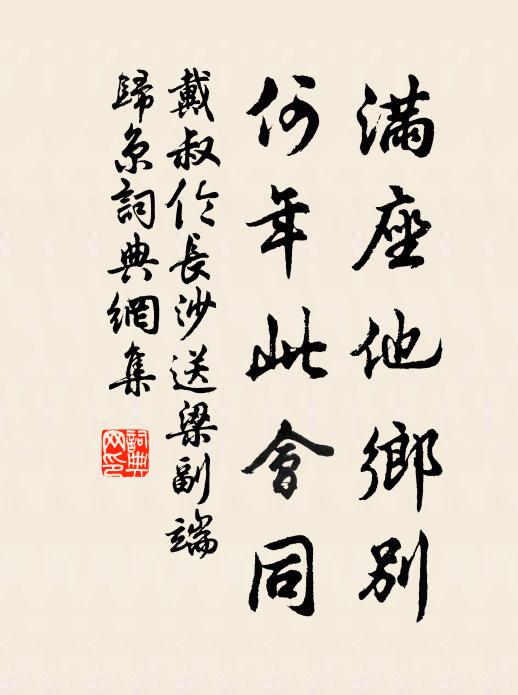 滿座他鄉別
何年此會同
戴叔伦長沙送梁副端
歸京詞典網集
詞典
网印